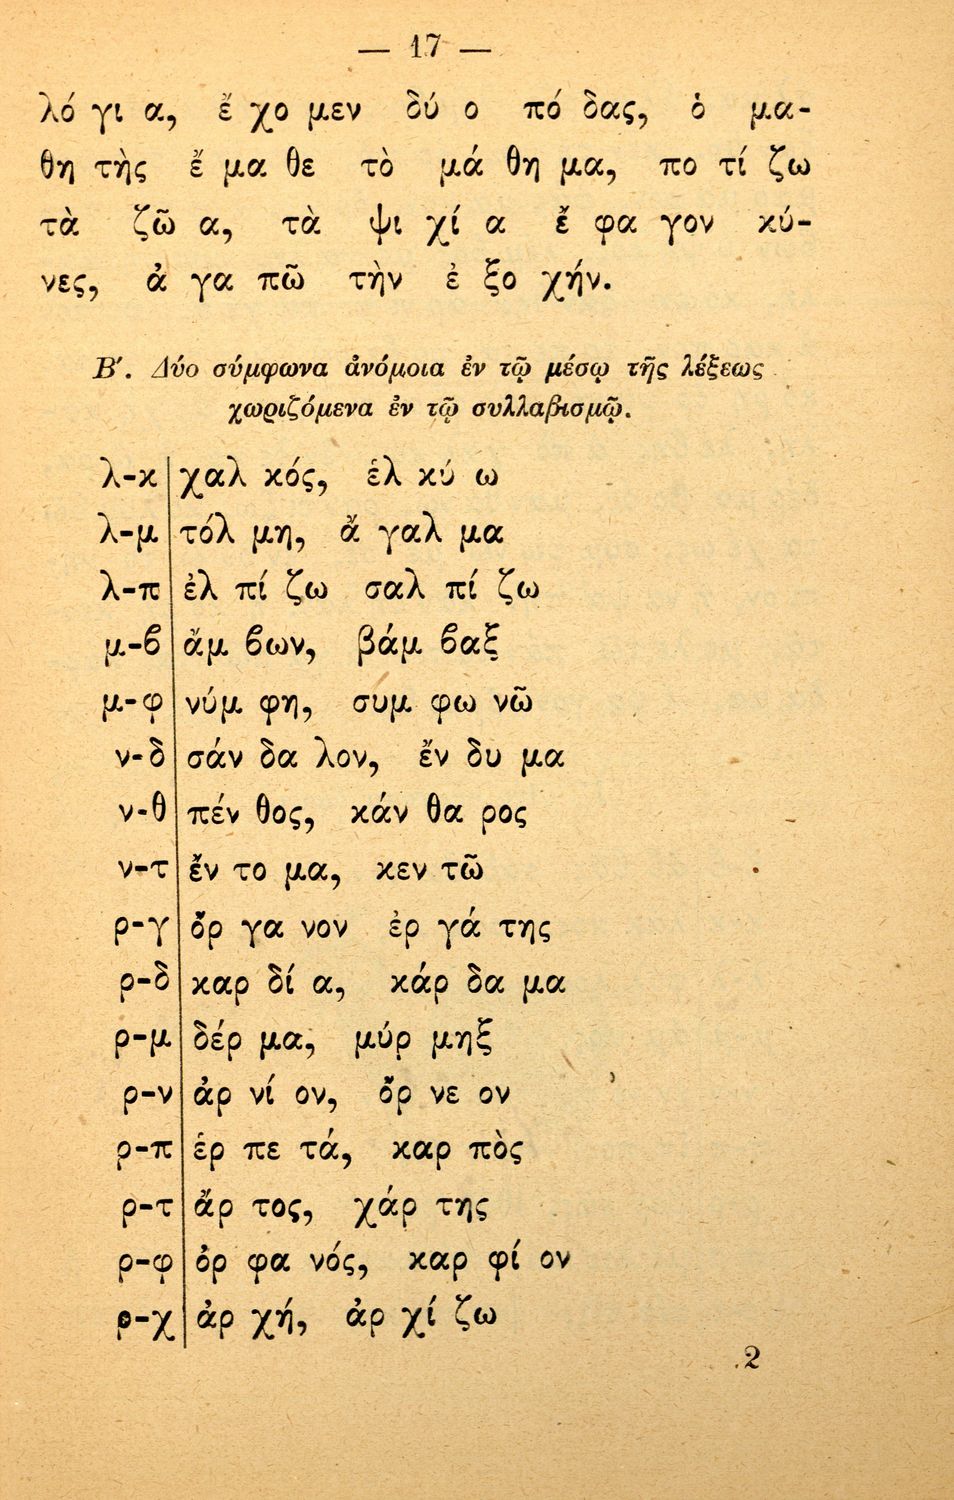 — 17 —
λό γι α, ἔ χο μεν δύ ο πό δας, ὁ μα-
θη τὴς ἔ μα θε τὸ μά θη μα, πο τί ζω
τὰ ζῶ α, τὰ ψι χί α ἔ φα γον κύ-
νες, ἀ γα πῶ τὴν ἐ ξο χήν.
Β΄. Δύο σύμφωνα ἀνόμοια ἐν τῷ μέσῳ τῆς λέξεως
χωριζόμενα ἐν τῷ συλλαβισμῷ.
λ-κ χαλ κός, ἑλ κύ ω
λ-μ τόλ μη, ἄ γαλ μα
λ-π ἐλ πί ζω σαλ πί ζω
μ-ϐ ἄμ ϐων, βάμ ϐαξ
μ-φ νύμ φη, συμ φω νῶ
ν-δ σάν δα λον, ἔν δυ μα
ν-θ πέν θος, κάν θα ρος
ν-τ ἔν το μα, κεν τῶ
ρ-γ ὄρ γα νον ἐρ γά της
ρ-δ καρ δί α, κάρ δα μα
ρ-μ δέρ μα, μύρ μηξ
ρ-ν ἀρ νί ον, ὄρ νε ον
ρ-π ἑρ πε τά, καρ πὸς
ρ-τ ἄρ τος, χάρ της
ρ-φ ὀρ φα νός, καρ φί ον
ρ-χ ἀρ χή, ἀρ χί ζω
2